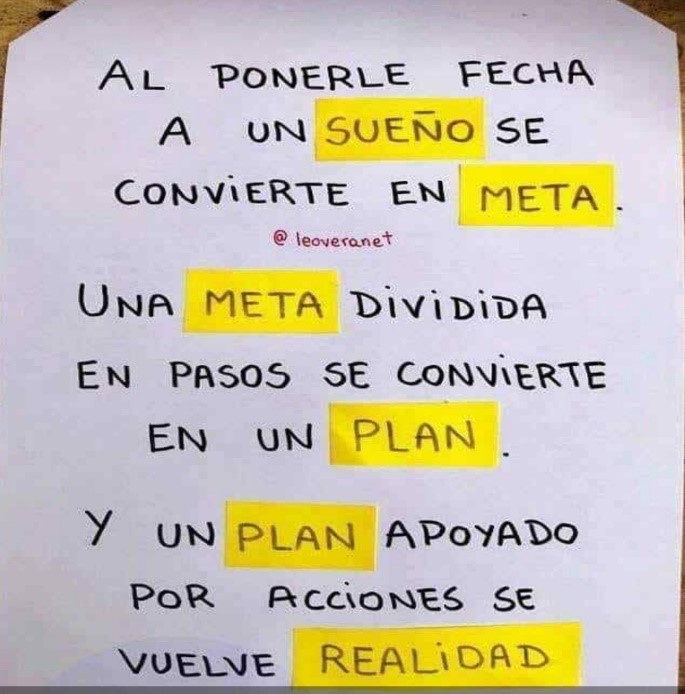 AL PONERLE FECHA
A UN SUEÑO SE
CONVIERTE EN META.
@leoveranet
UNA META DIVIDIDA
EN PASOS SE CONVIERTE
EN UN PLAN.
Y UN PLAN APOYADO
POR ACCIONES SE
VUELVE REALIDAD